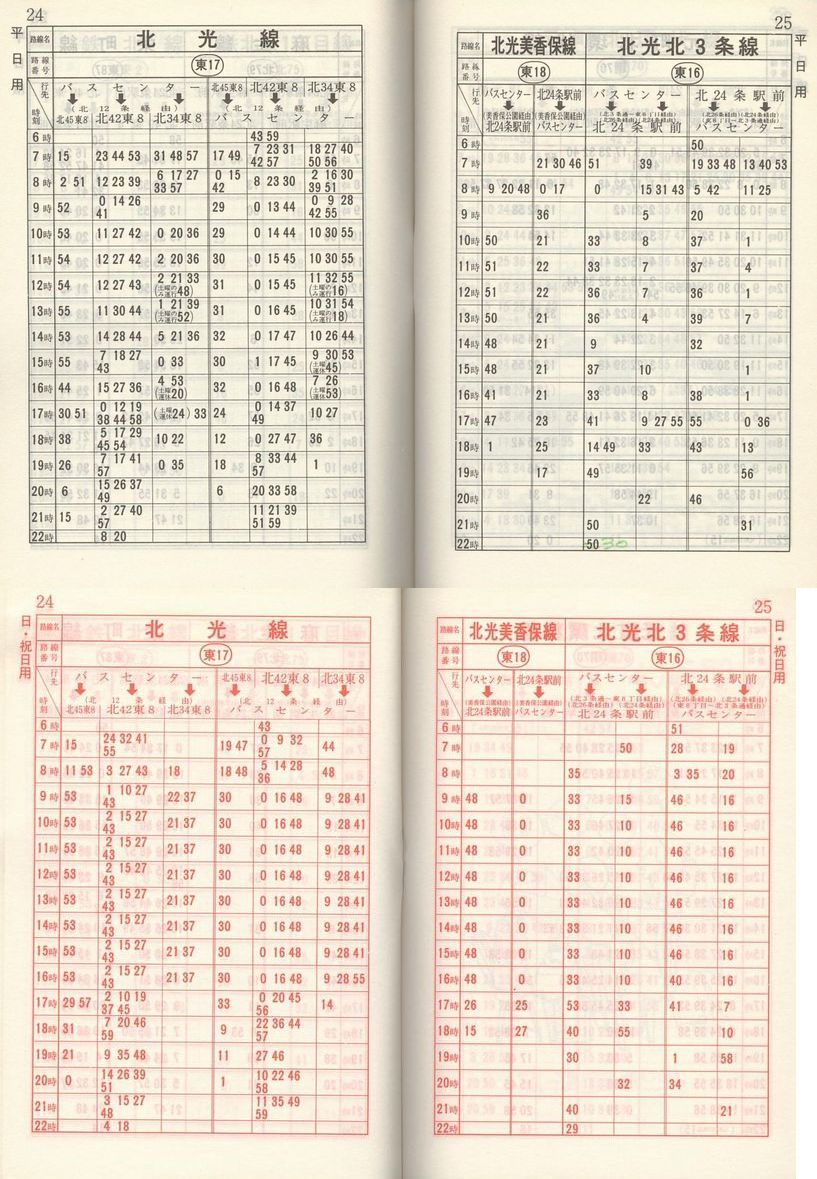 24
平日用
路線名 北光線
路線番号 東17
行先 時刻
バスセンター 北45東8 北42東8 北34東8
(北12条経由) (北12条経由)
北45東8 北42東8 北34東8 バスセンター
6時 43 59
7時 15 23 44 53 31 48 57 17 49 7 23 31 42 57 18 27 40 50 56
8時 2 51 12 23 39 6 17 27 33 57 0 15 42 8 23 30 2 16 30 39 51
9時 52 0 14 26 41 29 0 13 44 0 9 28 42 55
10時 53 11 27 42 0 20 36 29 0 14 44 10 30 55
11時 54 12 27 42 2 20 36 30 0 15 45 10 30 55
12時 54 12 27 43 2 21 33 (土曜のみ運行48) 31 0 15 45 11 32 55 (土曜のみ運行16)
13時 55 11 30 44 1 21 39 (土曜のみ運行52) 31 0 16 45 10 31 54 (土曜のみ運行18)
14時 53 14 28 44 5 21 36 32 0 17 47 10 26 44
15時 55 7 18 27 43 0 33 30 1 17 45 9 30 53 (土曜運休45)
16時 44 15 27 36 4 53 (土曜運休20) 32 0 16 48 7 26 (土曜運休53)
17時 30 51 0 12 19 38 44 58 (土曜運休24) 33 24 0 14 37 49 10 27
18時 38 5 17 29 45 54 10 22 12 0 27 47 36
19時 26 7 17 41 57 0 35 18 8 33 44 57 1
20時 6 15 26 37 49 6 20 33 58
21時 15 2 27 40 57 11 21 39 51 59
22時 8 20
25
平日用
路線名 北光美香保線 北光北3条線
路線番号 東18 東16
行先 時刻
バスセンター 北24条駅前 バスセンター 北24条駅前
(美香保公園経由) (美香保公園経由) (北3条通−東8丁目経由) (北26条経由) (北24条経由) (北26条経由) (北24条経由) (東8丁目−北3条経由)
北24条駅前 バスセンター 北24条駅前 バスセンター
6時 50
7時 21 30 46 51 39 19 33 48 13 40 53
8時 9 20 48 0 17 0 15 31 43 5 42 11 25
9時 36 5 20
10時 50 21 33 8 37 1
11時 51 22 33 7 37 4
12時 51 22 36 7 36 1
13時 50 21 36 4 39 7
14時 48 21 9 32
15時 48 21 37 10 1
16時 41 21 33 8 38 1
17時 47 23 41 9 27 55 55 0 36
18時 1 25 14 49 33 43 13
19時 17 49 56
20時 22 46
21時 50 31
22時 50 30
24
日・祝日用
路線名 北光線
路線番号 東17
行先 時刻
バスセンター 北45東8 北42東8 北34東8
(北12条経由) (北12条経由)
北45東8 北42東8 北34東8 バスセンター
6時 43
7時 15 24 32 41 55 19 47 0 9 32 57 44
8時 11 53 3 27 43 18 18 48 5 14 28 36 48
9時 53 1 10 27 43 22 37 30 0 16 48 9 28 41
10時 53 2 15 27 43 21 37 30 0 16 48 9 28 41
11時 53 2 15 27 43 21 37 30 0 16 48 9 28 41
12時 53 2 15 27 43 21 37 30 0 16 48 9 28 41
13時 53 2 15 27 43 21 37 30 0 16 48 9 28 41
14時 53 2 15 27 43 21 37 30 0 16 48 9 28 41
15時 53 2 15 27 43 21 37 30 0 16 48 9 28 41
16時 53 2 15 27 43 21 37 30 0 16 48 9 28 55
17時 29 57 2 10 19 37 45 33 0 20 45 56 14
18時 31 7 20 46 59 9 22 36 44 57
19時 21 9 35 48 11 27 46
20時 0 14 26 39 51 1 10 22 46 58
21時 3 15 27 48 11 35 49 59
22時 4 18
25
日・祝日用
路線名 北光美香保線 北光北3条線
路線番号 東18 東16
行先 時刻
バスセンター 北24条駅前 バスセンター 北24条駅前
(美香保公園経由) (美香保公園経由) (北3条通−東8丁目経由) (北26条経由) (北24条経由) (北26条経由) (北24条経由) (東8丁目−北3条通経由)
北24条駅前 バスセンター 北24条駅前 バスセンター
6時 51
7時 50 28 19
8時 35 3 35 20
9時 48 0 33 15 46 16
10時 48 0 33 10 46 16
11時 48 0 33 10 46 16
12時 48 0 33 10 46 16
13時 48 0 33 10 46 16
14時 48 0 33 10 46 16
15時 48 0 33 10 46 16
16時 48 0 33 10 40 16
17時 26 25 53 33 41 7
18時 15 27 40 55 10
19時 30 1 58
20時 32 34
21時 40 21
22時 29